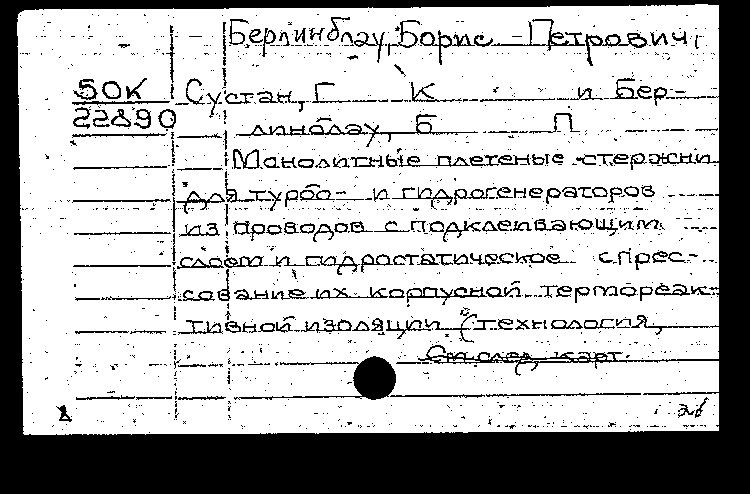 Берлинблау, Борис Петрович,
50К Сустан, Г К и Бер-
22890 линблау, Б П
Монолитные плетеные стержни
для турбо- и гидрогенераторов
из проводов с подклеивающим
слоем и гидростатическое спрес-
сование их корпусной термореак-
тивной изоляции (технология,
См. след. карт.